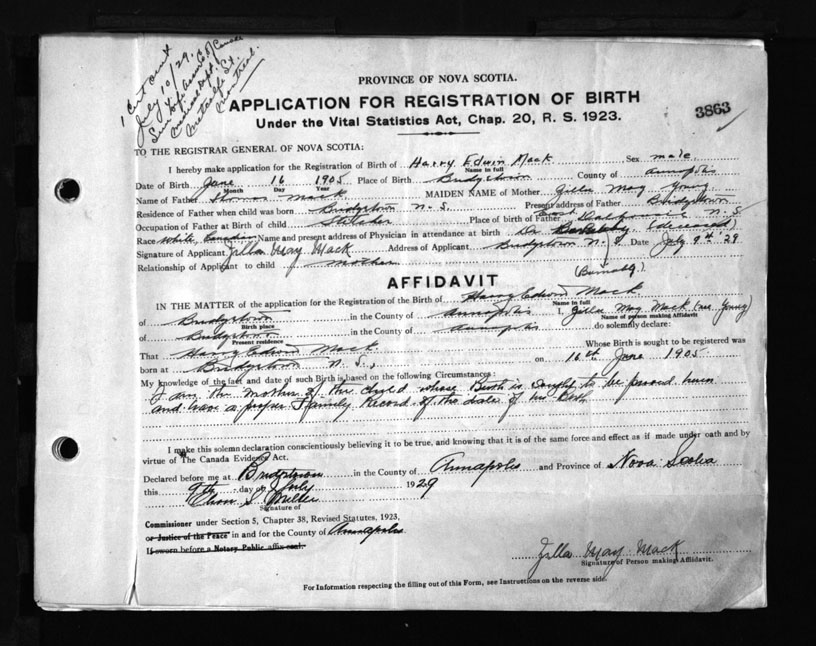 1 Cert sent
July 10/29, to
Sun Life Assce Co of Canada
Metcalfe St.
Montreal.
PROVINCE OF NOVA SCOTIA.
APPLICATION FOR REGISTRATION OF BIRTH
3863
Under the Vital Statistics Act, Chap. 20, R. S. 1923.
TO THE REGISTRAR GENERAL OF NOVA SCOTIA:
I hereby make application for the Registration of Birth of Harry Edwin Mack Sex male
Name in full
Date of Birth June 16 1905 Place of Birth Bridgetown County of Annapolis
Month Day Year
Name of Father Thomas Mack MAIDEN NAME of Mother Zilla May Young
Residence of Father when child was born Bridgetown N. S. Present address of Father Bridgetown
Occupation of Father at Birth of child Place of birth of Father East Dalhousie N. S.
Race White, Canadian Name and present address of Physician in attendance at birth Dr (deceased)
Signature of Applicant Zilla May Mack Address of Applicant Bridgetown N. S. Date July 9th '29
Relationship of Applicant to child mother
AFFIDAVIT
IN THE MATTER of the application for the Registration of the Birth of Harry Edwin Mack
Name in full
of Bridgetown in the County of Annapolis I, Zilla May Mack (nee Young)
Birth place Name of person making Affidavit
of Bridgetown in the County of Annapolis do solemnly declare:
Present residence
That Harry Edwin Mack Whose Birth is sought to be registered was
born at Bridgetown N. S., on 16th June 1905
My knowledge of the fact and date of such Birth is based on the following Circumstances:
I am the Mother of the child whose Birth is sought to be proved herein
and have a proper Family Record of the date of his Birth
I make this solemn declaration conscientiously believing it to be true, and knowing that it is of the same force and effect as if made under oath and by
virtue of The Canada Evidence Act.
Declared before me at Bridgetown in the County of Annapolis and Province of Nova Scotia
this 9th day of July 1929
Signature of
Commissioner under Section 5, Chapter 38, Revised Statutes, 1923,
or Justice of the Peace in and for the County of Annapolis.
If sworn before a Notary Public affix seal.
Zilla May Mack
Signature of Person making Affidavit.
For Information respecting the filling out of this Form, see Instructions on the reverse side.